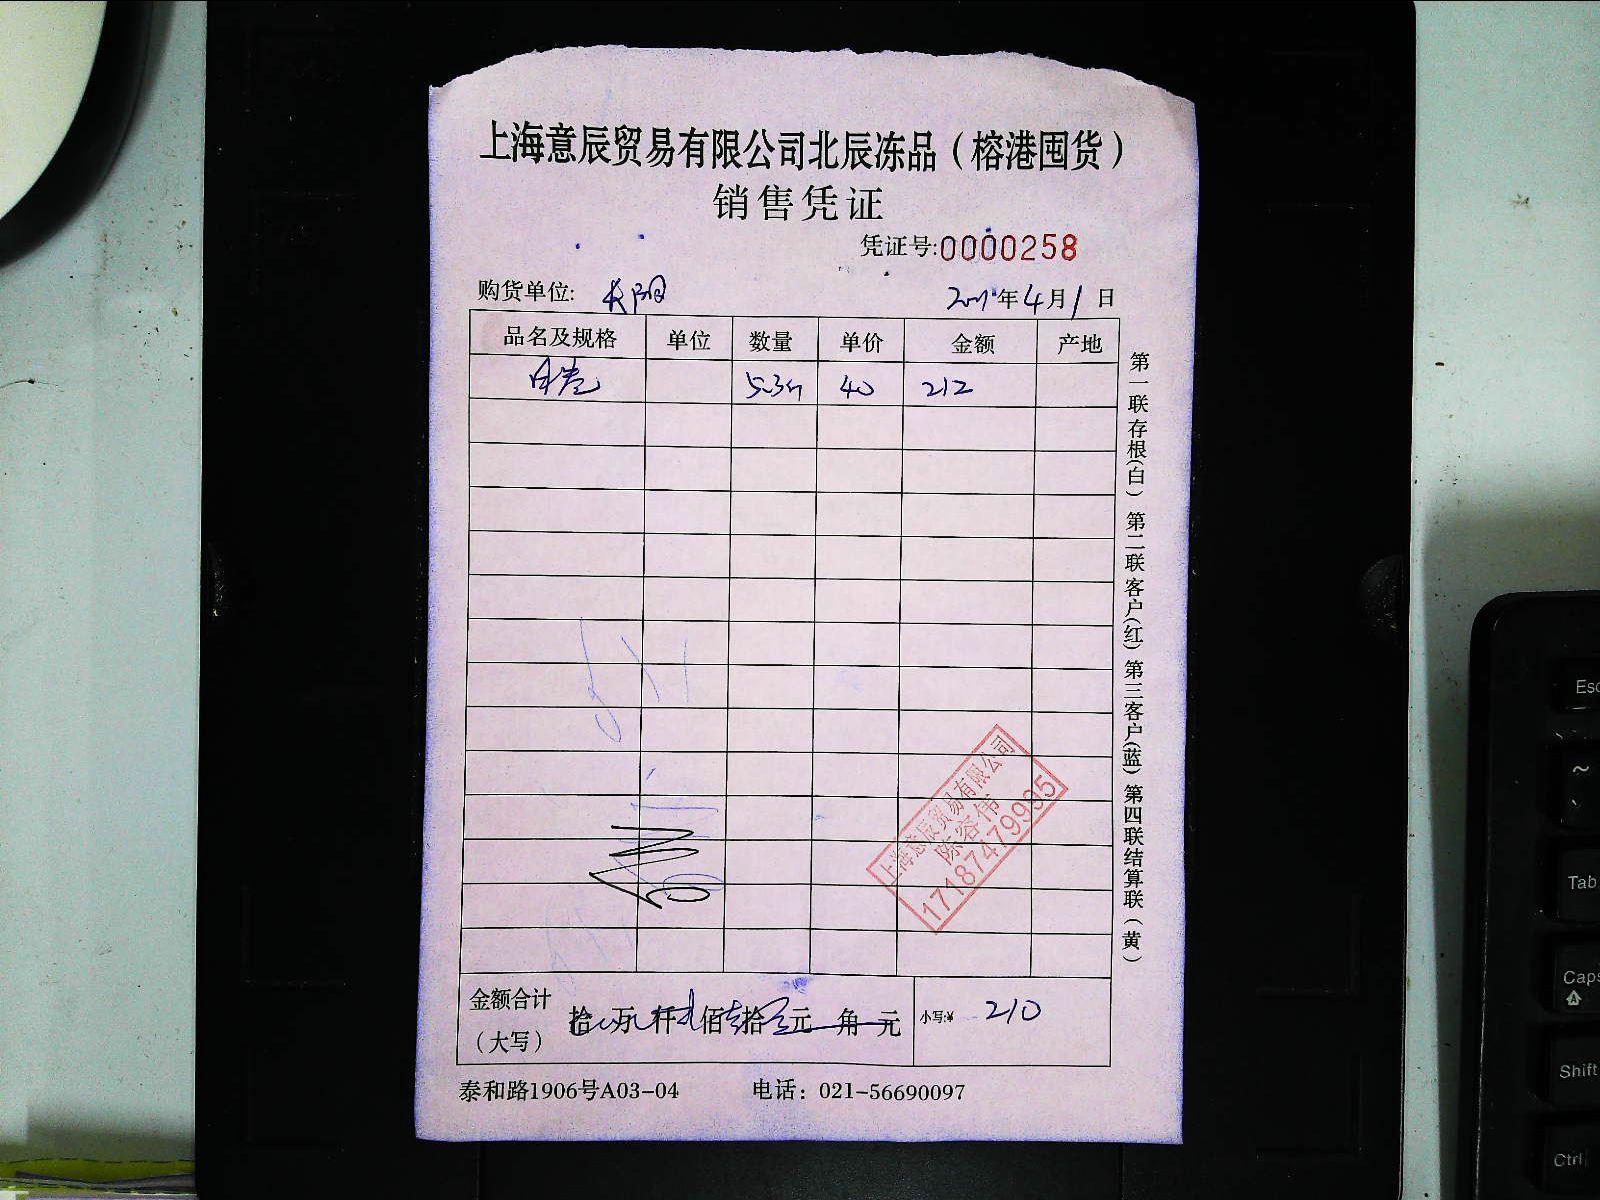 上海意辰贸易有限公司北辰冻品（榕港囤货）
销售凭证
凭证号:0000258
购货单位: 长阳
年4月1日
品名及规格 单位 数量 单价 金额 产地
5.3 40 212
第一联存根(白) 第二联客户(红) 第三客户(蓝) 第四联结算联(黄)
上海意辰贸易有限公司
陈容伟
17187479995
金额合计（大写） 拾 万 仟 佰 拾 元 角 元 小写:¥ 210
泰和路1906号A03-04 电话：021-56690097
Esc
~
Tab
Caps
A
Shift
Ctrl